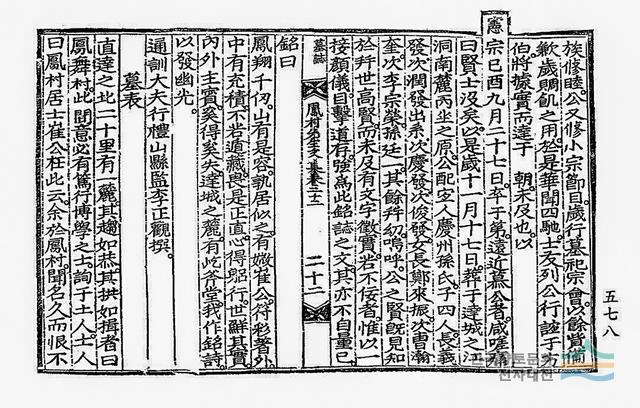 族修睦公又修小宗節目歲行墓祀宗會以餘貲備
歉歲賙飢之用於是華聞四馳士友列公行誼于方
伯將據實而達于 朝未及也以
憲
宗己酉九月二十七日卒于第遠近慕公者咸嗟
曰賢士沒矣以是歲十一月十七日葬于達城之
洞南麓丙坐之原公配安人慶州孫氏子四人長
發次潤發出系次慶發次俊發女長鄭來振次曺瀚
奎次李宗榮孫廷一其餘幷幼嗚呼公之賢旣見知
於幷世高賢而未及有文字徵實若不佞者惟以一
接顏儀目擊道存強爲此銘誌之文其亦不自量已
墓誌
鳳村先生文集卷之二十二
二十二
銘曰
鳳翔千仞山有是容孰居似之有嬍崔公符彩著外
中有充積不若遁藏畏是正直心得躬行世鮮其實
內外主賓奚得奚失達城之麓有屹斧堂我作銘詩
以發幽光
通訓大夫行禮山縣監李正觀撰
墓表
直達之北二十里有一麓其趨如恭其拱如揖者曰
鳳舞村此間意必有篤行博學之士詢于土人土人
曰鳳村居士崔公在此云余於鳳村聞名久而恨不
五七八